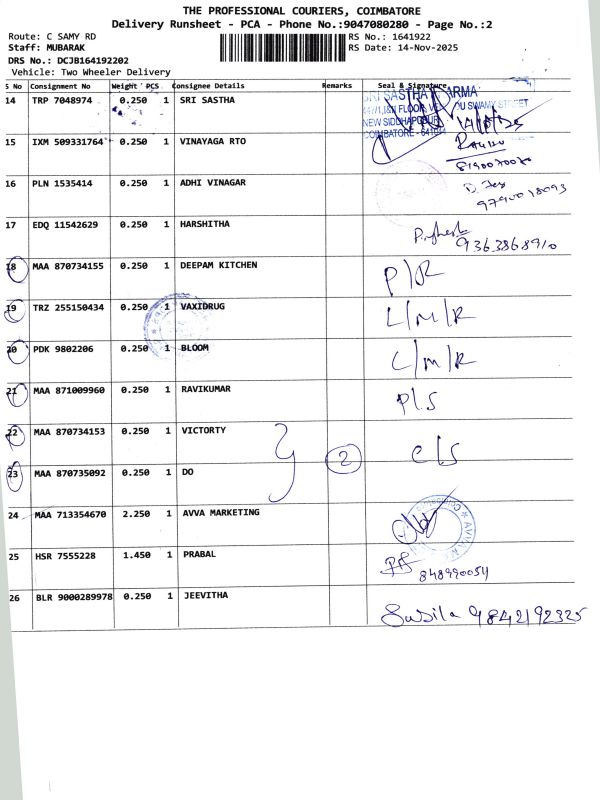 THE PROFESSIONAL COURIERS, COIMBATORE
Delivery Runsheet - PCA - Phone No.:9047080280 - Page No.:2
Route: C SAMY RD RS No.: 1641922
Staff: MUBARAK RS Date: 14-Nov-2025
DRS No.: DCJB164192202
Vehicle: Two Wheeler Delivery
S No Consignment No Weight PCS Consignee Details Remarks Seal & Signature
14 TRP 7048974 0.250 1 SRI SASTHA
SRI SASTHA PHARMA
NEW SIDDHAPUDUR
COIMBATORE - 641044
15 IXM 509331764 0.250 1 VINAYAGA RTO
8190070070
16 PLN 1535414 0.250 1 ADHI VINAGAR
9790018093
17 EDQ 11542629 0.250 1 HARSHITHA
9363868910
18 MAA 870734155 0.250 1 DEEPAM KITCHEN P/R
19 TRZ 255150434 0.250 1 VAXIDRUG L/M/R
20 PDK 9802206 0.250 1 BLOOM L/M/R
21 MAA 871009960 0.250 1 RAVIKUMAR P/S
22 MAA 870734153 0.250 1 VICTORTY 2 C/S
23 MAA 870735092 0.250 1 DO
24 MAA 713354670 2.250 1 AVVA MARKETING
25 HSR 7555228 1.450 1 PRABAL
848990054
26 BLR 9000289978 0.250 1 JEEVITHA
Susila 9842192325